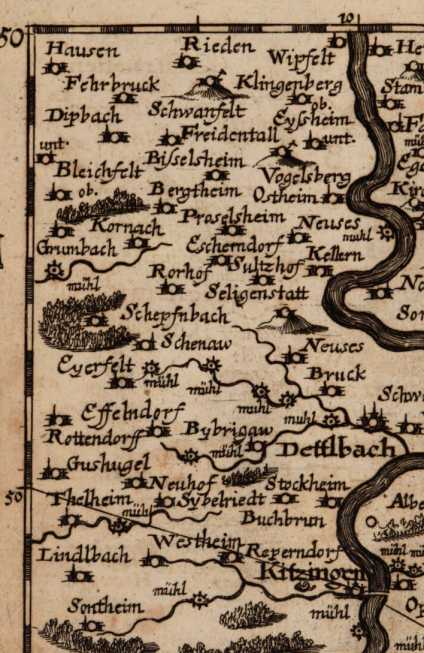 50
10
Hausen
Rieden
Wipfelt
Fehrbruck
Klingenberg
Stam
Dipbach
Schwanfelt
ob.
Eyssheim
unt.
Freidentall
unt.
Bleichfelt
Bisselsheim
Vogelsberg
ob.
Bergtheim
Ostheim
Kornach
Proselsheim
Neuses
mühl
Grumbach
Escherndorf
Kellern
mühl
Rorhof
Sultzhof
Seligenstatt
Schepfnbach
Schenaw
Neuses
Eyerfelt
mühl
mühl
Bruck
mühl
Schw
Effelndorf
mühl
Rottendorff
Bybrigaw
Dettlbach
mühl
Gushugel
Neuhof
Stockheim
50
Thelheim
mühl
Sybelriedt
Albe
Buchbrun
Westheim
Lindlbach
Reperndorf
mühl
Kitzingen
mühl
Sontheim
mühl
mühl